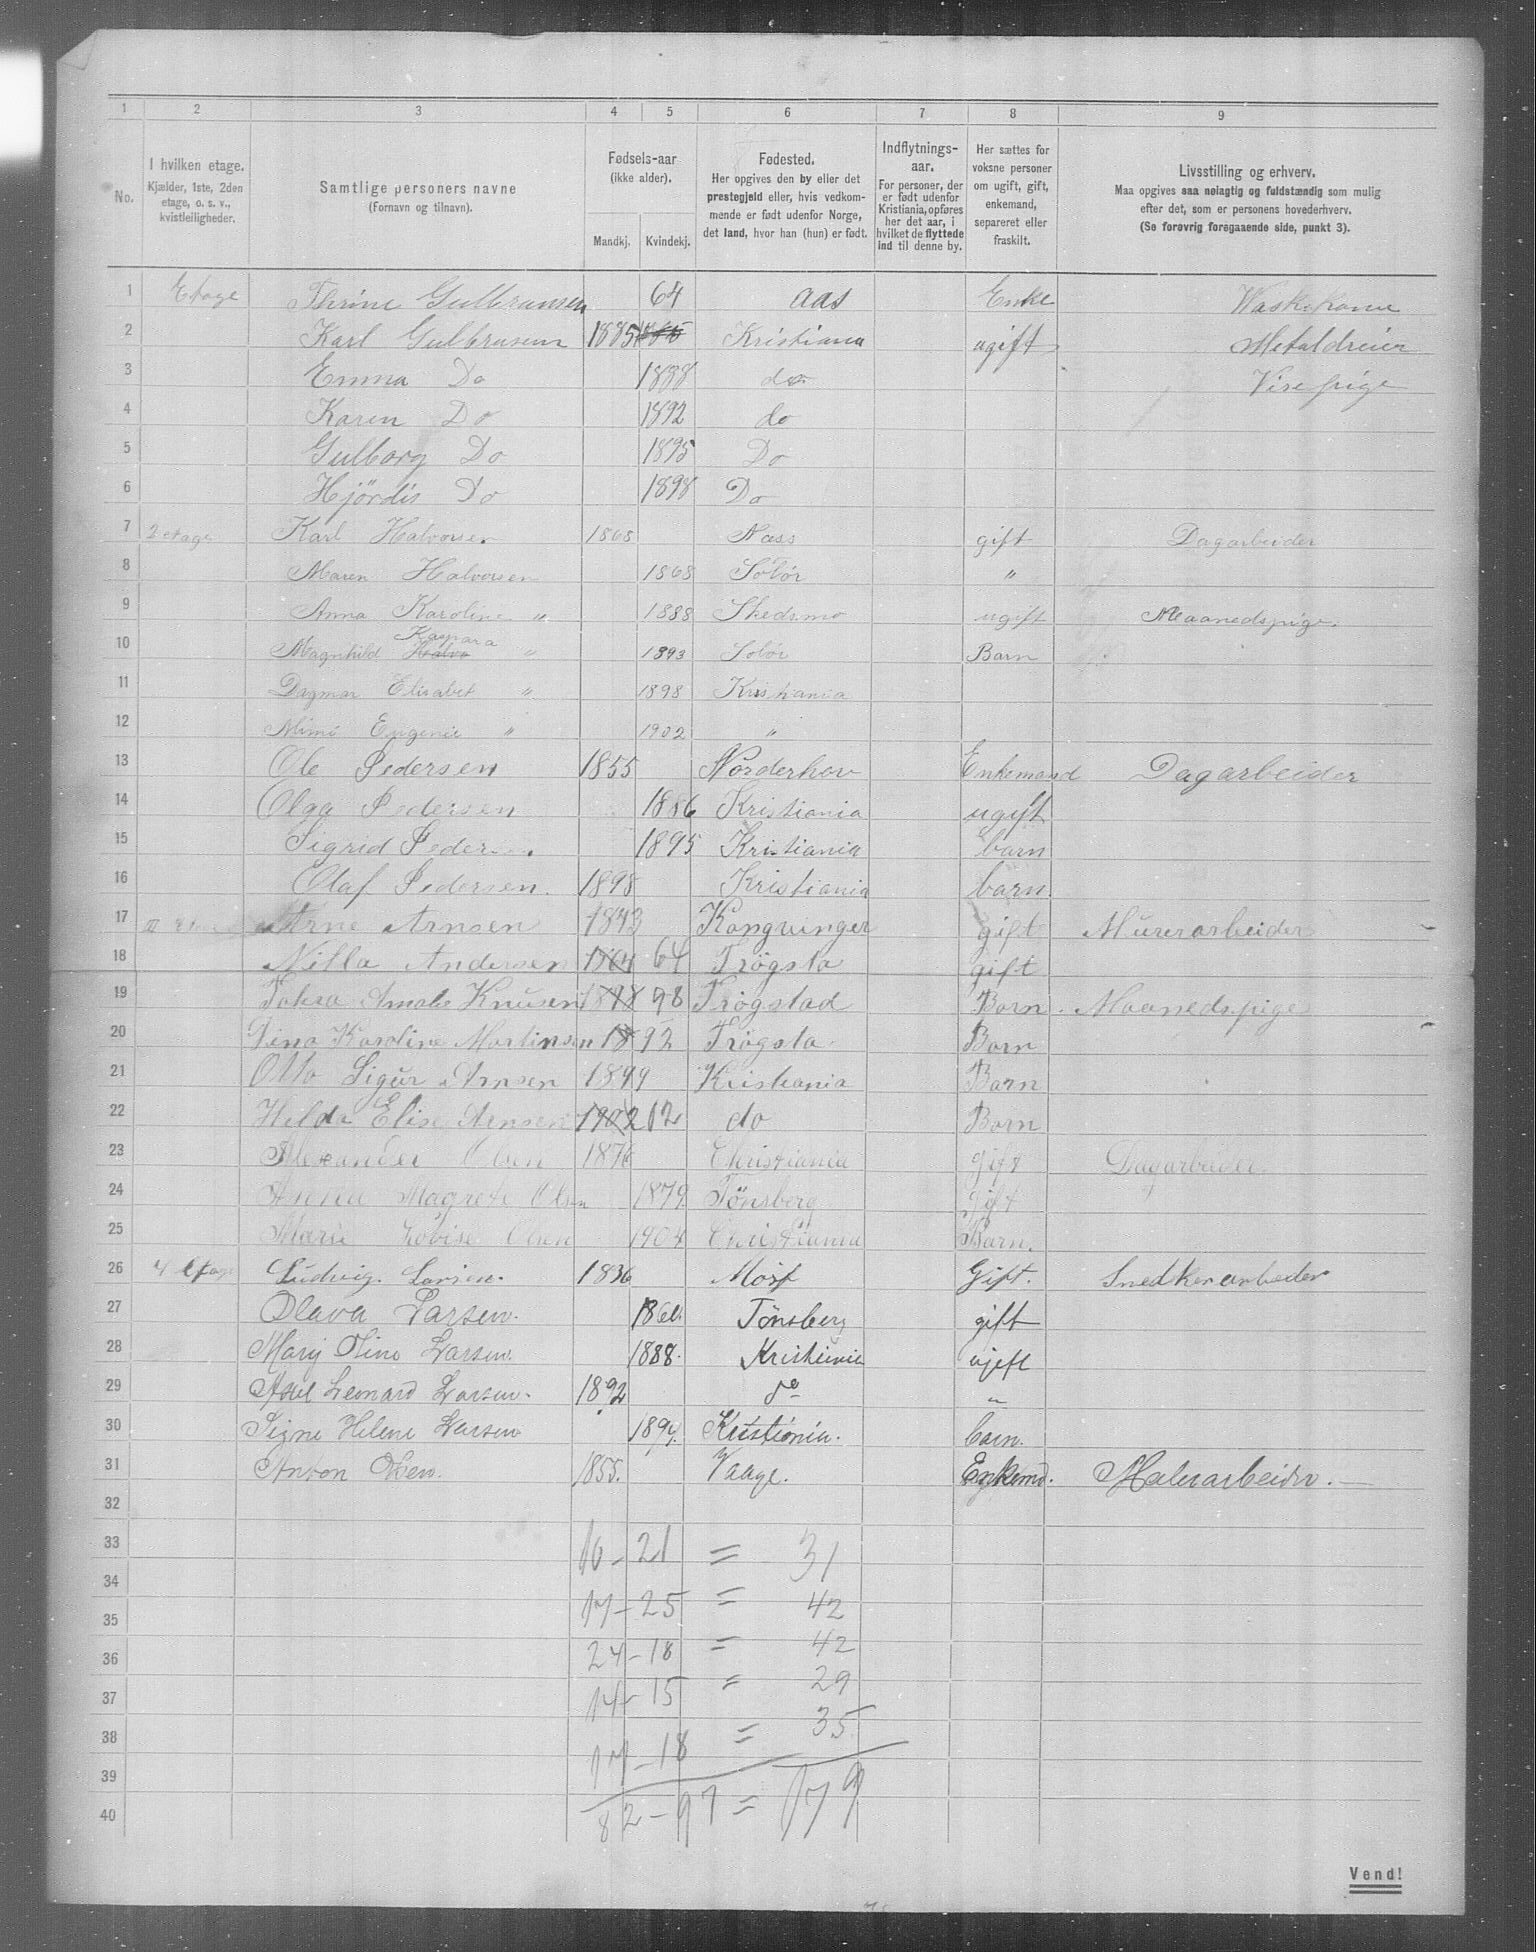 1 2 3 4 5 6 7 8 9
No.
I hvilken etage.
Kjælder, 1ste, 2den
etage, o. s. v.,
kvistleiligheder.
Samtlige personers navne
(Fornavn og tilnavn).
Fødsels-aar
(ikke alder).
Mandkj. Kvindekj.
Fødested.
Her opgives den by eller det
prestegjeld eller, hvis vedkom-
mende er født udenfor Norge,
det land, hvor han (hun) er født.
Indflytnings-
aar.
For personer, der
er født udenfor
Kristiania, opføres
her det aar, i
hvilket de flyttede
ind til denne by.
Her sættes for
voksne personer
om ugift, gift,
enkemand,
separeret eller
fraskilt.
Livsstilling og erhverv.
Maa opgives saa nøiagtig og fuldstændig som mulig
efter det, som er personens hovederhverv.
(Se forøvrig foregaaende side, punkt 3).
1 Etage Thrine Gulbransen 64 aas Enke Waskekone
2 Karl Gulbrusen 1885 Kristiana ugift Metaldreier
3 Emma Do 1888 do Visepige
4 Karen Do 1892 do
5 Gulborg Do 1895 Do
6 Hjördis Do 1898 Do
7 2 etage Karl Halvorsen 1868 Næss gift Dagarbeider
8 Maren Halvorsen 1868 Solör "
9 Anna Karoline " 1888 Skedsmo ugift Maanedspige.
10 Magnhild Kaspara " 1893 Solör Barn
11 Dagmar Elisabet " 1898 Kristiania
12 Mimi Eugenie " 1902 "
13 Ole Pedersen 1855 Norderhov Enkemand Dagarbeider
14 Olga Pedersen 1886 Kristiania ugift
15 Sigrid Peder 1895 Kristiania barn
16 Olaf Pedersen. 1898 Kristiania barn.
17 Arne Arnsen 1843 Kongvinger gift Murerarbeider
18 Nilla Andersen 1864 64 Trögsta gift
19 Amalie Knusen 98 Trögstad Barn Maanedspige
20 Karoline Martinsen 1892 Trögsta Barn
21 Otto Sigur Arnsen 1899 Kristiania Barn
22 Helda Elise Arnsen 1902 12 do Barn
23 Alexander Olsen 1876 Christiania Gift Dagarbeider
24 Anna Magrete Olsen 1879 Tönsberg Gift
25 Marie Lovise Olsen 1904 Christiania Barn.
26 4 Etage Ludvig. Larsen. 1836 Gift. Snedkerarbeder
27 Olava Larsen. Tönsberg gift
28 Mary Larsen. 1888. Kristiania ugift
29 Axel Leonard Larsen. 1892 do "
30 Signe Helene Larsen Kristiania. barn.
31 Anton Olsen. 1855. Vaage. Enkemd. Malerarbeider.
32
33 10 - 21 = 31
34
35 17 - 25 = 42
36 24 - 18 = 42
37 14 - 15 = 29
38 17 - 18 = 35
39
40 82 - 97 = 179
Vend!